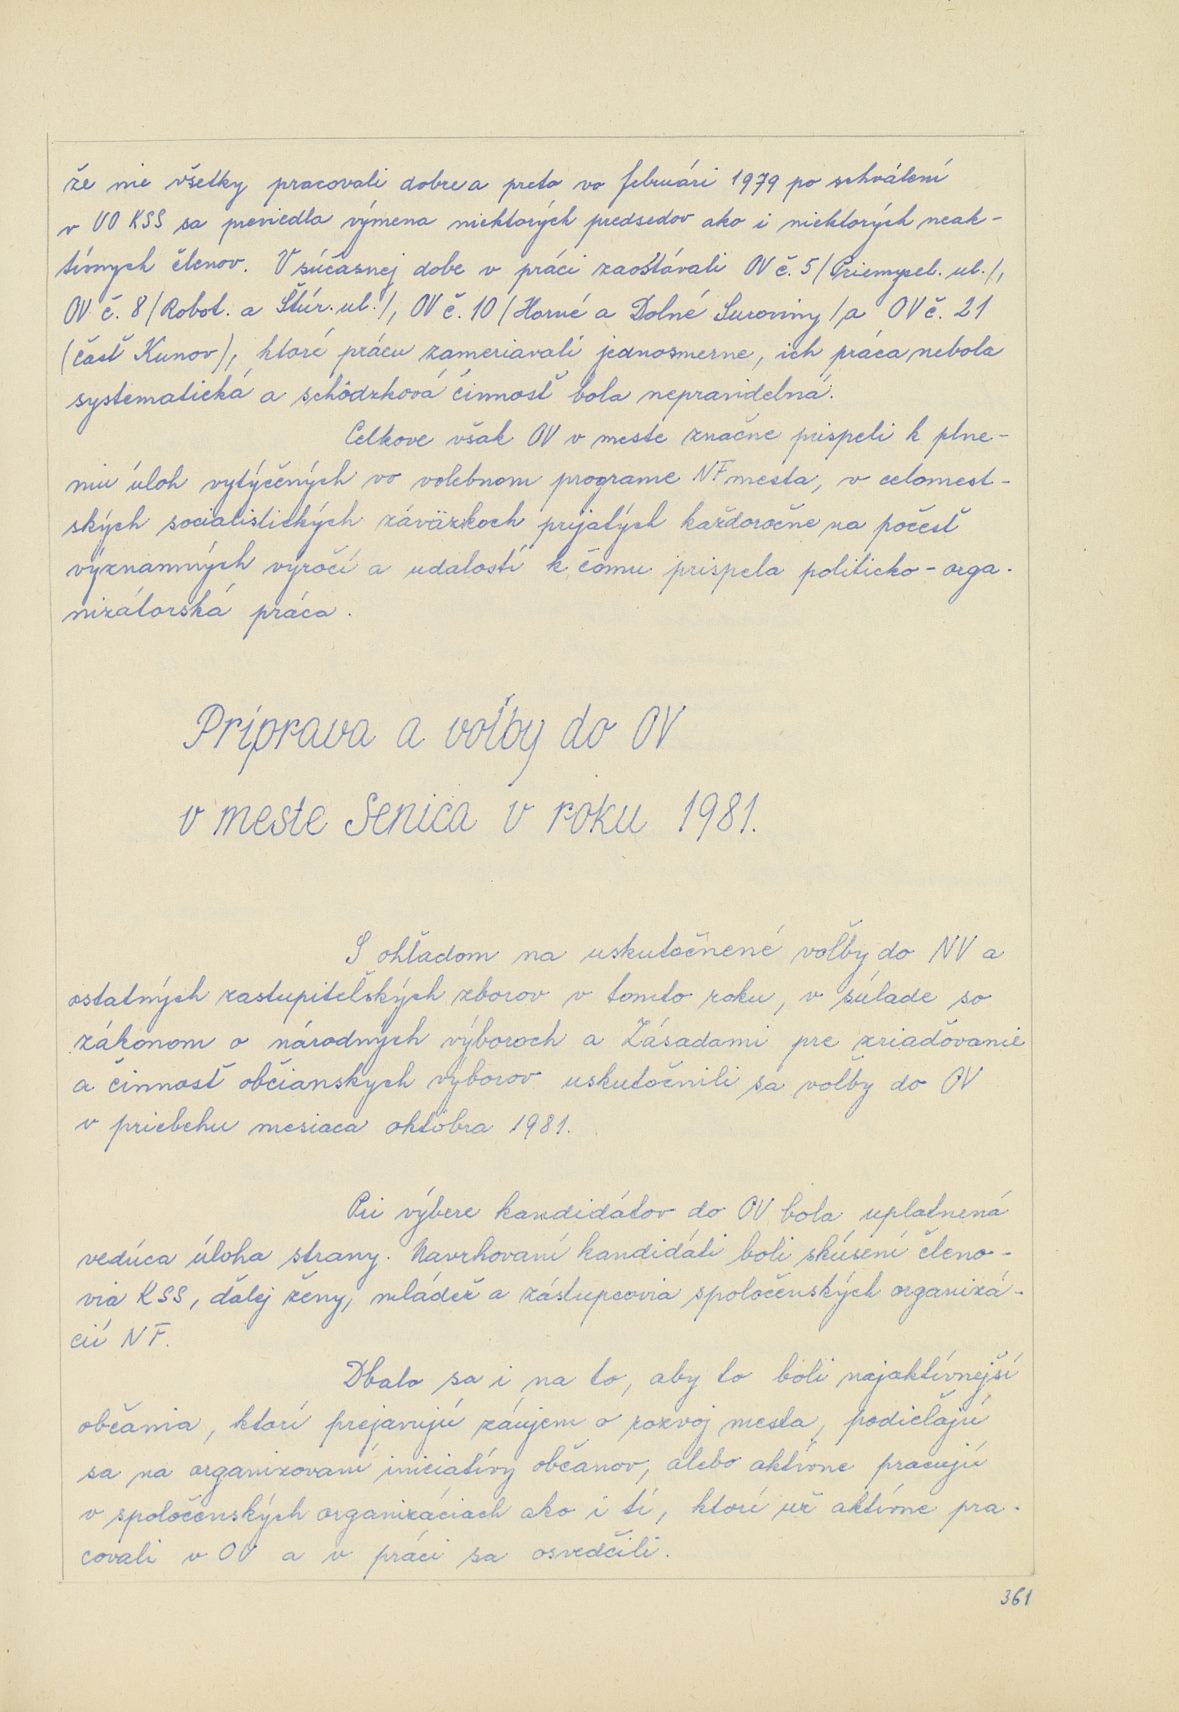 že nie všetky pracovali dobre a preto vo februári 1979 po schválení
v UO KSS sa previedla výmena niektorých predsedov ako i niektorých neak-
tívnych členov. V súčasnej dobe v práci zaostávali OV č. 5 /Priemysel. ul./,
OV č. 8 /Robot. a Štúr. ul./, OV č. 10 /Horné a Dolné Suroviny/ a OV č. 21
(časť Kunov), ktoré prácu zameriavali jednosmerne, ich práca nebola
systematická a schôdzková činnosť bola nepravidelná.
Celkove však OV v meste značne prispeli k plne-
niu úloh vytýčených vo volebnom programe NF mesta, v celomest-
ských socialistických záväzkoch prijatých každoročne na počesť
významných výročí a udalostí k čomu prispela politicko-orga-
nizátorská práca.
Príprava a voľby do OV
v meste Senica v roku 1981.
S ohľadom na uskutočnené voľby do NV a
ostatných zastupiteľských zborov v tomto roku, v súlade so
zákonom o národných výboroch a Zásadami pre zriaďovanie
a činnosť občianskych výborov uskutočnili sa voľby do OV
v priebehu mesiaca októbra 1981.
Pri výbere kandidátov do OV bola uplatnená
vedúca úloha strany. Navrhovaní kandidáti boli skúsení členo-
via KSS, ďalej ženy, mládež a zástupcovia spoločenských organizá-
cií NF.
Dbalo sa i na to, aby to boli najaktívnejší
občania, ktorí prejavujú záujem o rozvoj mesta, podieľajú
sa na organizovaní iniciatívy občanov, alebo aktívne pracujú
v spoločenských organizáciach ako i tí, ktorí už aktívne pra-
covali v OV a v práci sa osvedčili.
361